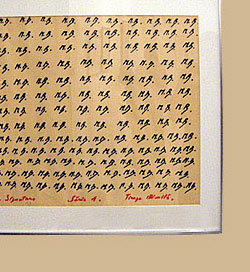 n.g. n.g. n.g. n.g. n.g. n.g. n.g. n.g. n.g.
n.g. n.g. n.g. n.g. n.g. n.g. n.g. n.g. n.g.
n.g. n.g. n.g. n.g. n.g. n.g. n.g. n.g. n.g.
n.g. n.g. n.g. n.g. n.g. n.g. n.g. n.g. n.g.
n.g. n.g. n.g. n.g. n.g. n.g. n.g. n.g. n.g.
n.g. n.g. n.g. n.g. n.g. n.g. n.g. n.g. n.g.
n.g. n.g. n.g. n.g. n.g. n.g. n.g. n.g. n.g.
n.g. n.g. n.g. n.g. n.g. n.g. n.g. n.g. n.g.
n.g. n.g. n.g. n.g. n.g. n.g. n.g. n.g. n.g.
n.g. n.g. n.g. n.g. n.g. n.g. n.g. n.g. n.g. n.g.
n.g. n.g. n.g. n.g. n.g. n.g. n.g. n.g. n.g. n.g.
n.g. n.g. n.g. n.g. n.g. n.g. n.g. n.g. n.g. n.g.
n.g. n.g. n.g. n.g. n.g. n.g. n.g. n.g. n.g. n.g.
n.g. n.g. n.g. n.g. n.g. n.g. n.g. n.g. n.g. n.g.
Signature Série A. Tirage illimité.